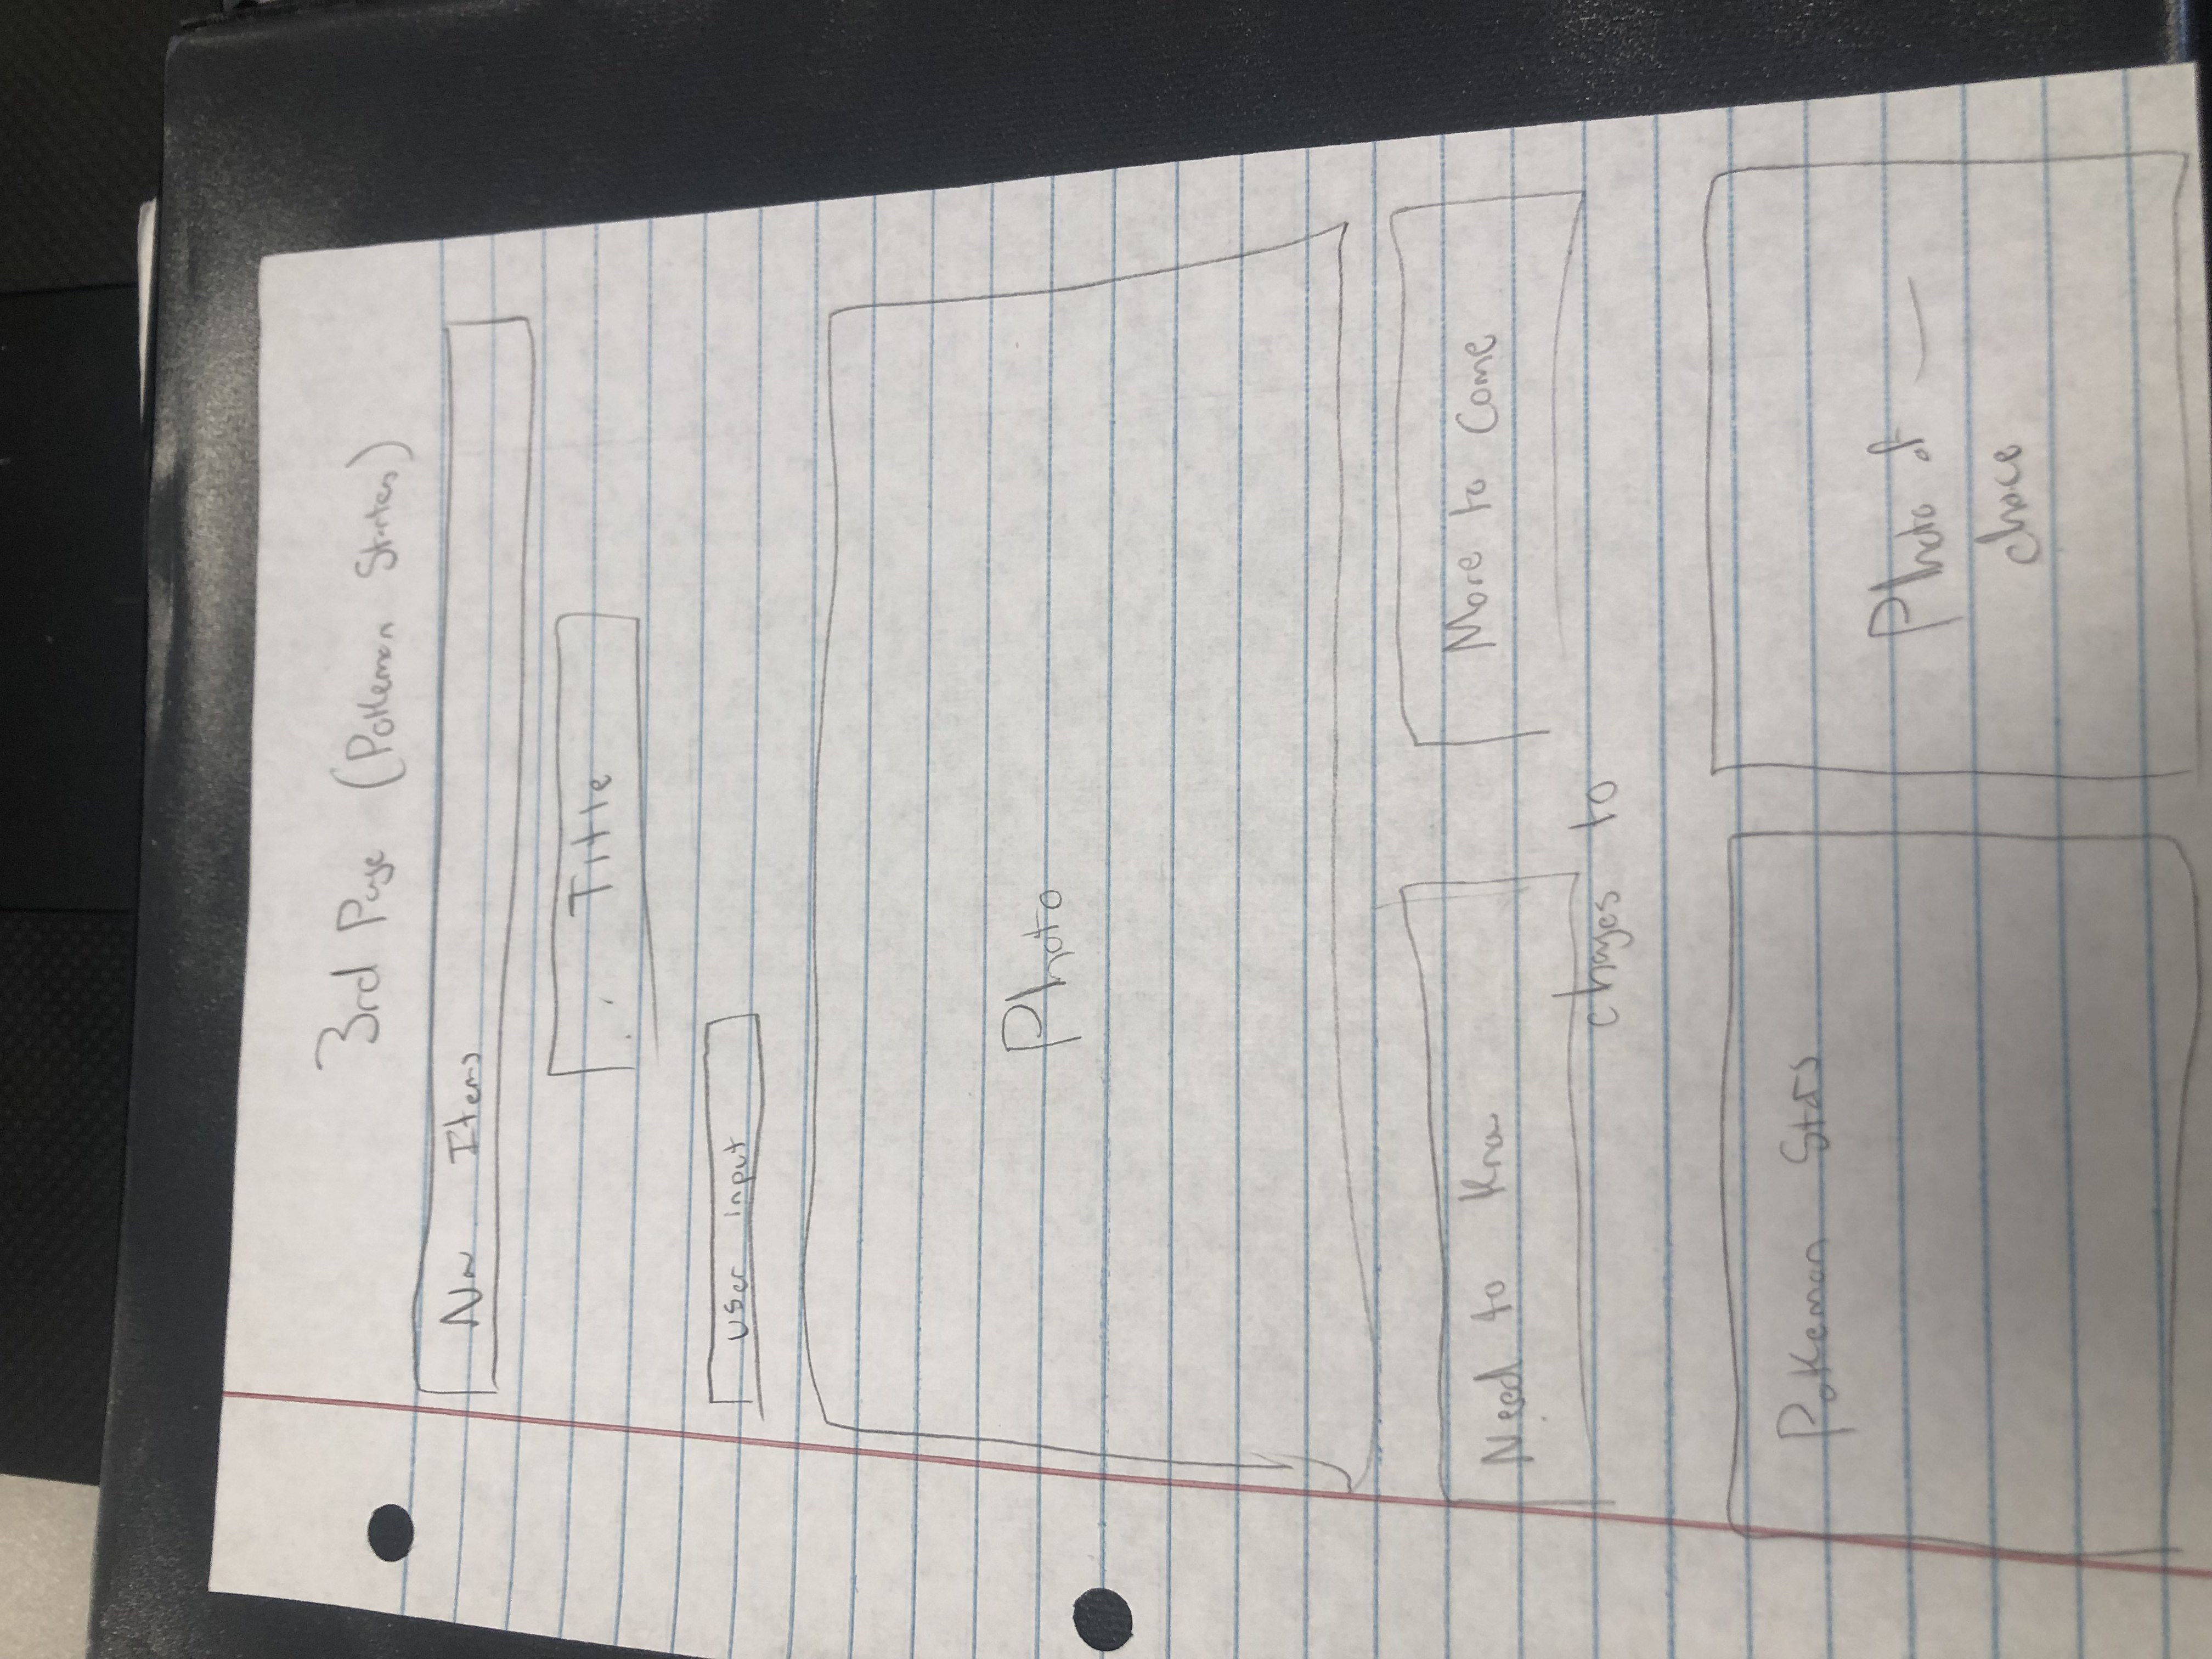 3rd Page (Pokemon Starters)
Nav Items
Title
User input
Photo
Need to Know
More to Come
changes to
Pokemon Stats
Photo of —
choice